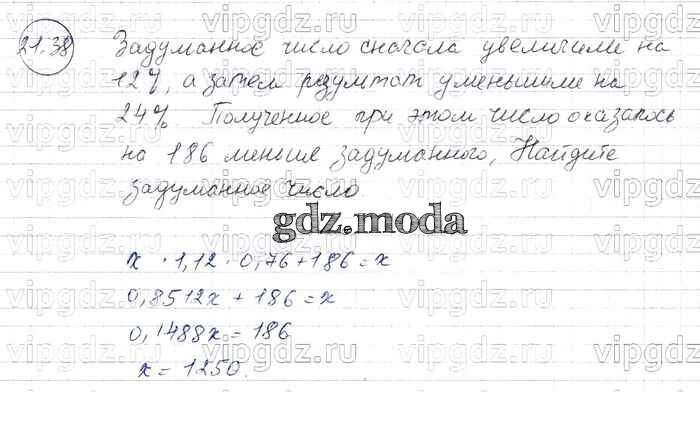 21.38 Задуманное число сначала увеличили на
12%, а затем результат уменьшили на
24%. Полученное при этом число оказалось
на 186 меньше задуманного. Найдите
задуманное число.
gdz.moda
x · 1,12 · 0,76 + 186 = x
0,8512x + 186 = x
0,1488x = 186
x = 1250.
vipgdz.ru